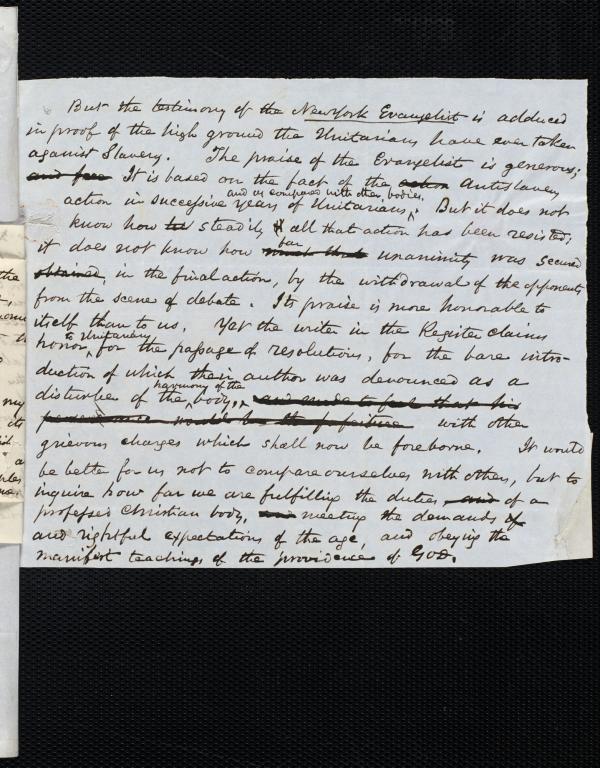 But the testimony of the New York Evangelist is adduced
in proof of the high ground the Unitarians have ever taken
against Slavery. The praise of the Evangelist is generous;
It is based on the fact of the action Antislavery
and as compared with other bodies,
action in successive years of Unitarians. But it does not
know how steadily all that action has been resisted;
bar
it does not know how much that unanimity was secured
obtained, in the final actions, by the withdrawal of the opponents
from the scene of debate. Its praise is more honorable to
itself than to us. Yet the write in the Register claims
to Unitarians
honor for the passage of resolutions, for the bare intro-
duction of which their author was denounced as a
harmony of the
disturber of the body, and made to feel that his
perseverance would be the forfeiture with other
grievous charges which shall now be foreborne. It would
be better for us not to compare ourselves with others, but to
inquire how far we are fulfilling the duties and of a
professed Christian body, meeting the demands of
and rightful expectations of the age, and obeying the
manifest teachings of the providence of God.
the
my
its
a